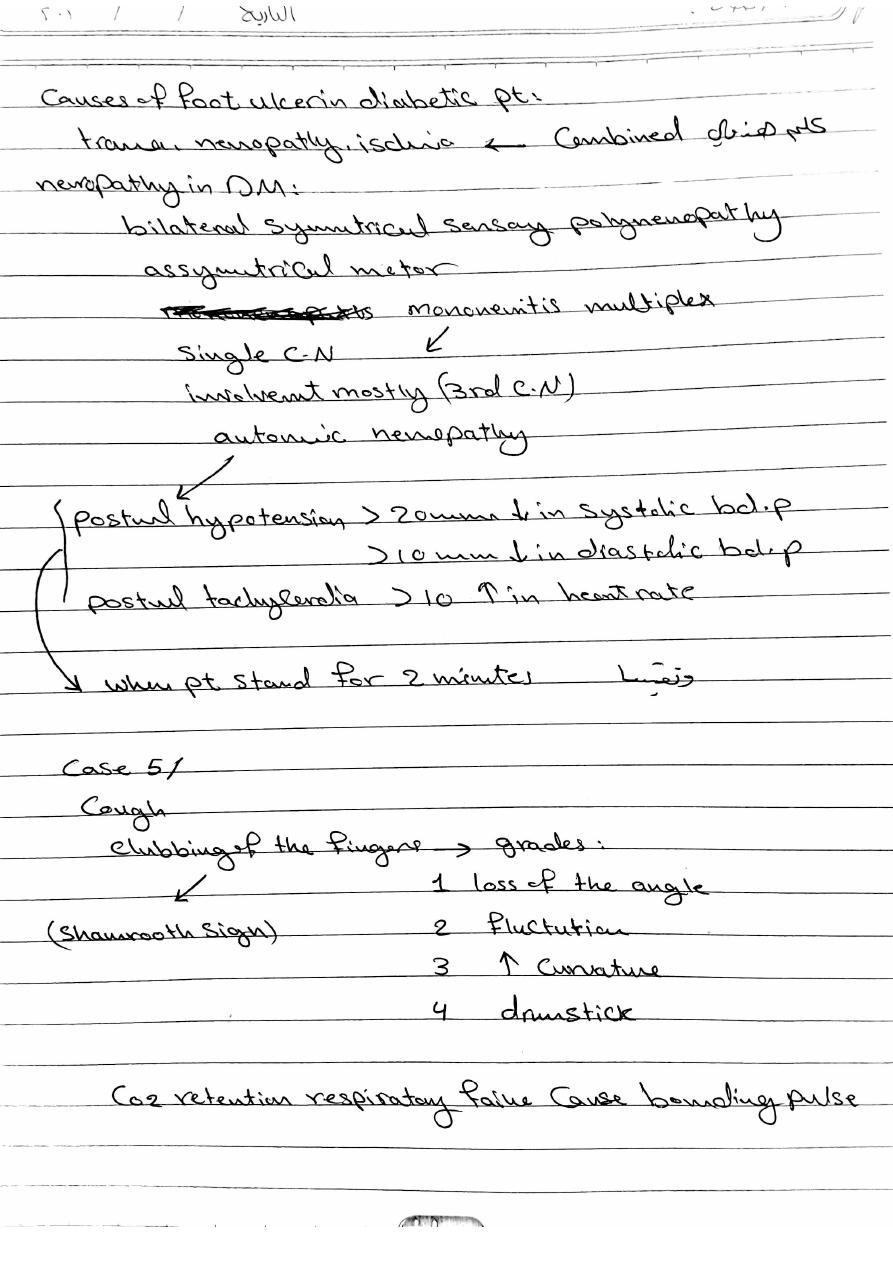 التاريخ / / ٢٠١
Causes of foot ulcer in diabetic pt:
trauma, neuropathy, ischmia ← Combined
neuropathy in DM:
bilateral symmetrical sensory polyneuropathy
assymetrical motor
mononeuritis multiplex
Single C-N
involvemt mostly (3rd C.N)
autonomic neuropathy
postural hypotension > 20mm ↓ in systolic bd.p
>10 mm ↓ in diastolic bd.p
postural tachycardia >10 ↑ in heart rate
when pt stand for 2 minutes
Case 5/
Cough
Clubbing of the fingers → grades:
1 loss of the angle
(Shamrooth Sign) 2 fluctution
3 ↑ Curvature
4 drumstick
Co2 retention respiratory failure Cause bounding pulse